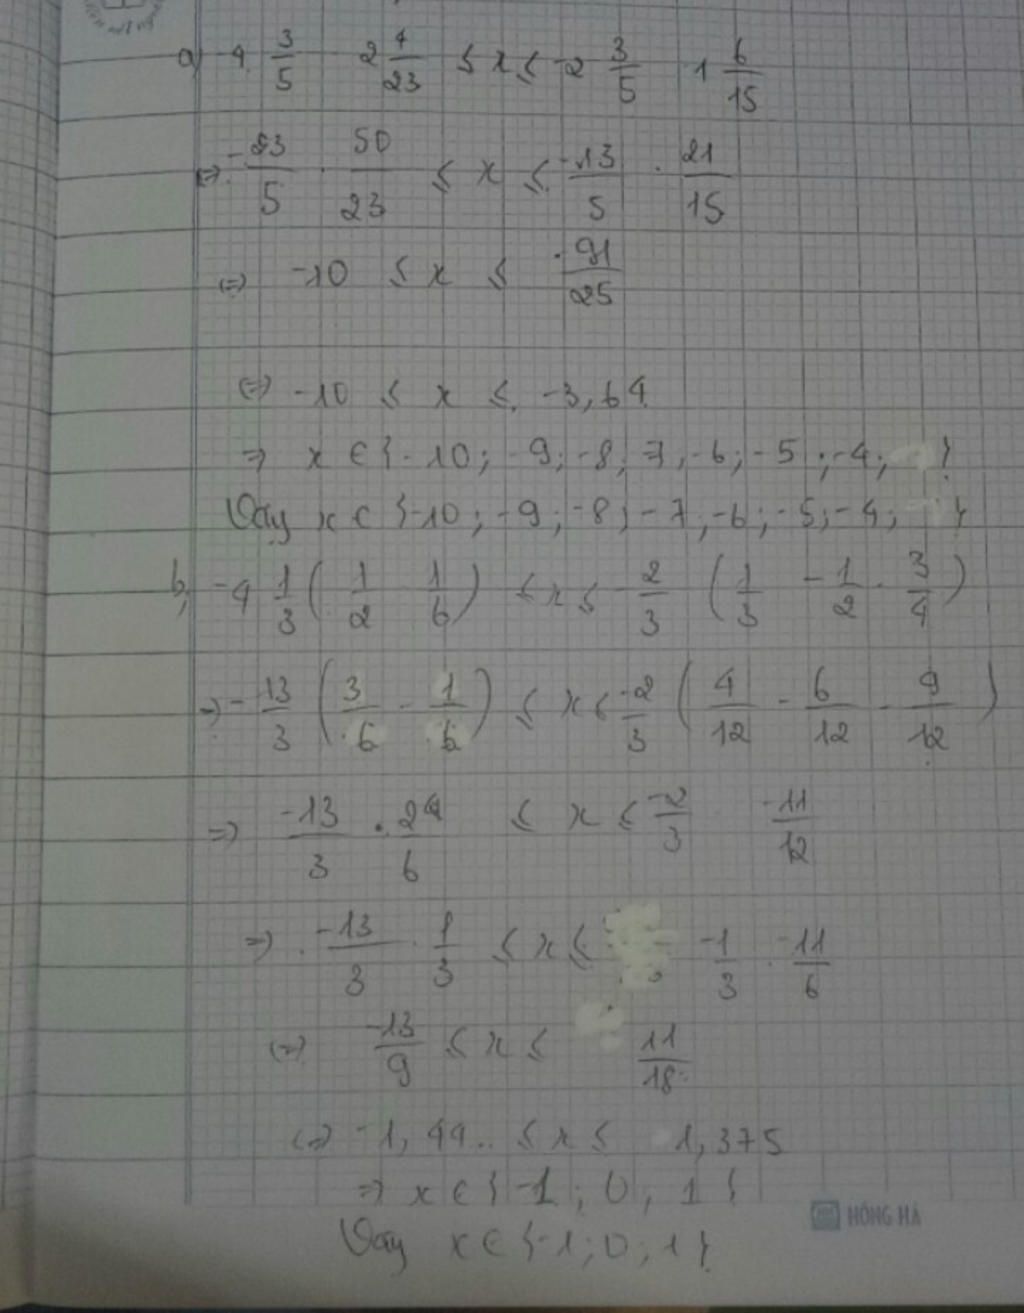 a) -4 3/5 2 4/23 ≤ x ≤ -2 3/5 1 6/15
(=) -23/5 . 50/23 ≤ x ≤ -13/5 . 21/15
(=) -10 ≤ x ≤ -91/25
(=) -10 ≤ x ≤ -3,64
=> x ∈ {-10; -9; -8; -7; -6; -5; -4; }
Vậy x ∈ {-10; -9; -8; -7; -6; -5; -4; }
b, -4 1/3 (1/2 - 1/6) ≤ x ≤ -2/3 (1/3 - 1/2 - 3/4)
=> -13/3 (3/6 - 1/6) ≤ x ≤ -2/3 (4/12 - 6/12 - 9/12)
=> -13/3 . 2/6 ≤ x ≤ -2/3 -11/12
=> -13/3 . 1/3 ≤ x ≤ -1/3 . -11/6
(=) -13/9 ≤ x ≤ 11/18
(=) -1,44.. ≤ x ≤ 1,375
=> x ∈ {-1; 0; 1}
HỒNG HÀ
Vậy x ∈ {-1; 0; 1}